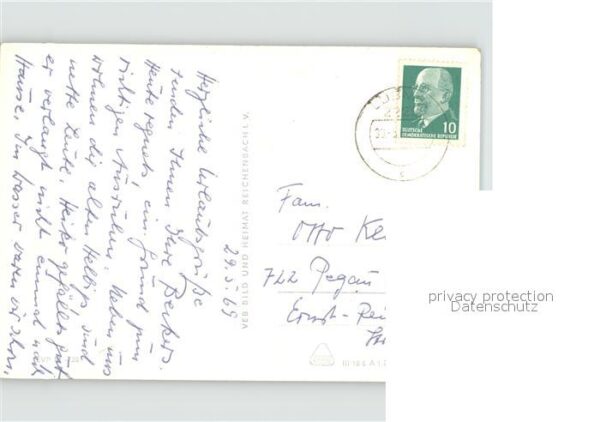 29.5.69
Herzliche Urlaubsgrüße
senden Ihnen Ihre Beckers.
Heute regnets, ein Grund zum
richtigen Ausruhen. Neben uns
wohnen die alten Helbigs sind
nette Leute. Heiko gefällts gut
er verlangt nicht einmal nach
Hause. Im Wasser waren wir schon,
VEB BILD UND HEIMAT REICHENBACH I. V.
DEUTSCHE
DEMOKRATISCHE REPUBLIK
10
Fam.
Otto Ke
722 Pegau
Ernst-Rei
privacy protection
Datenschutz